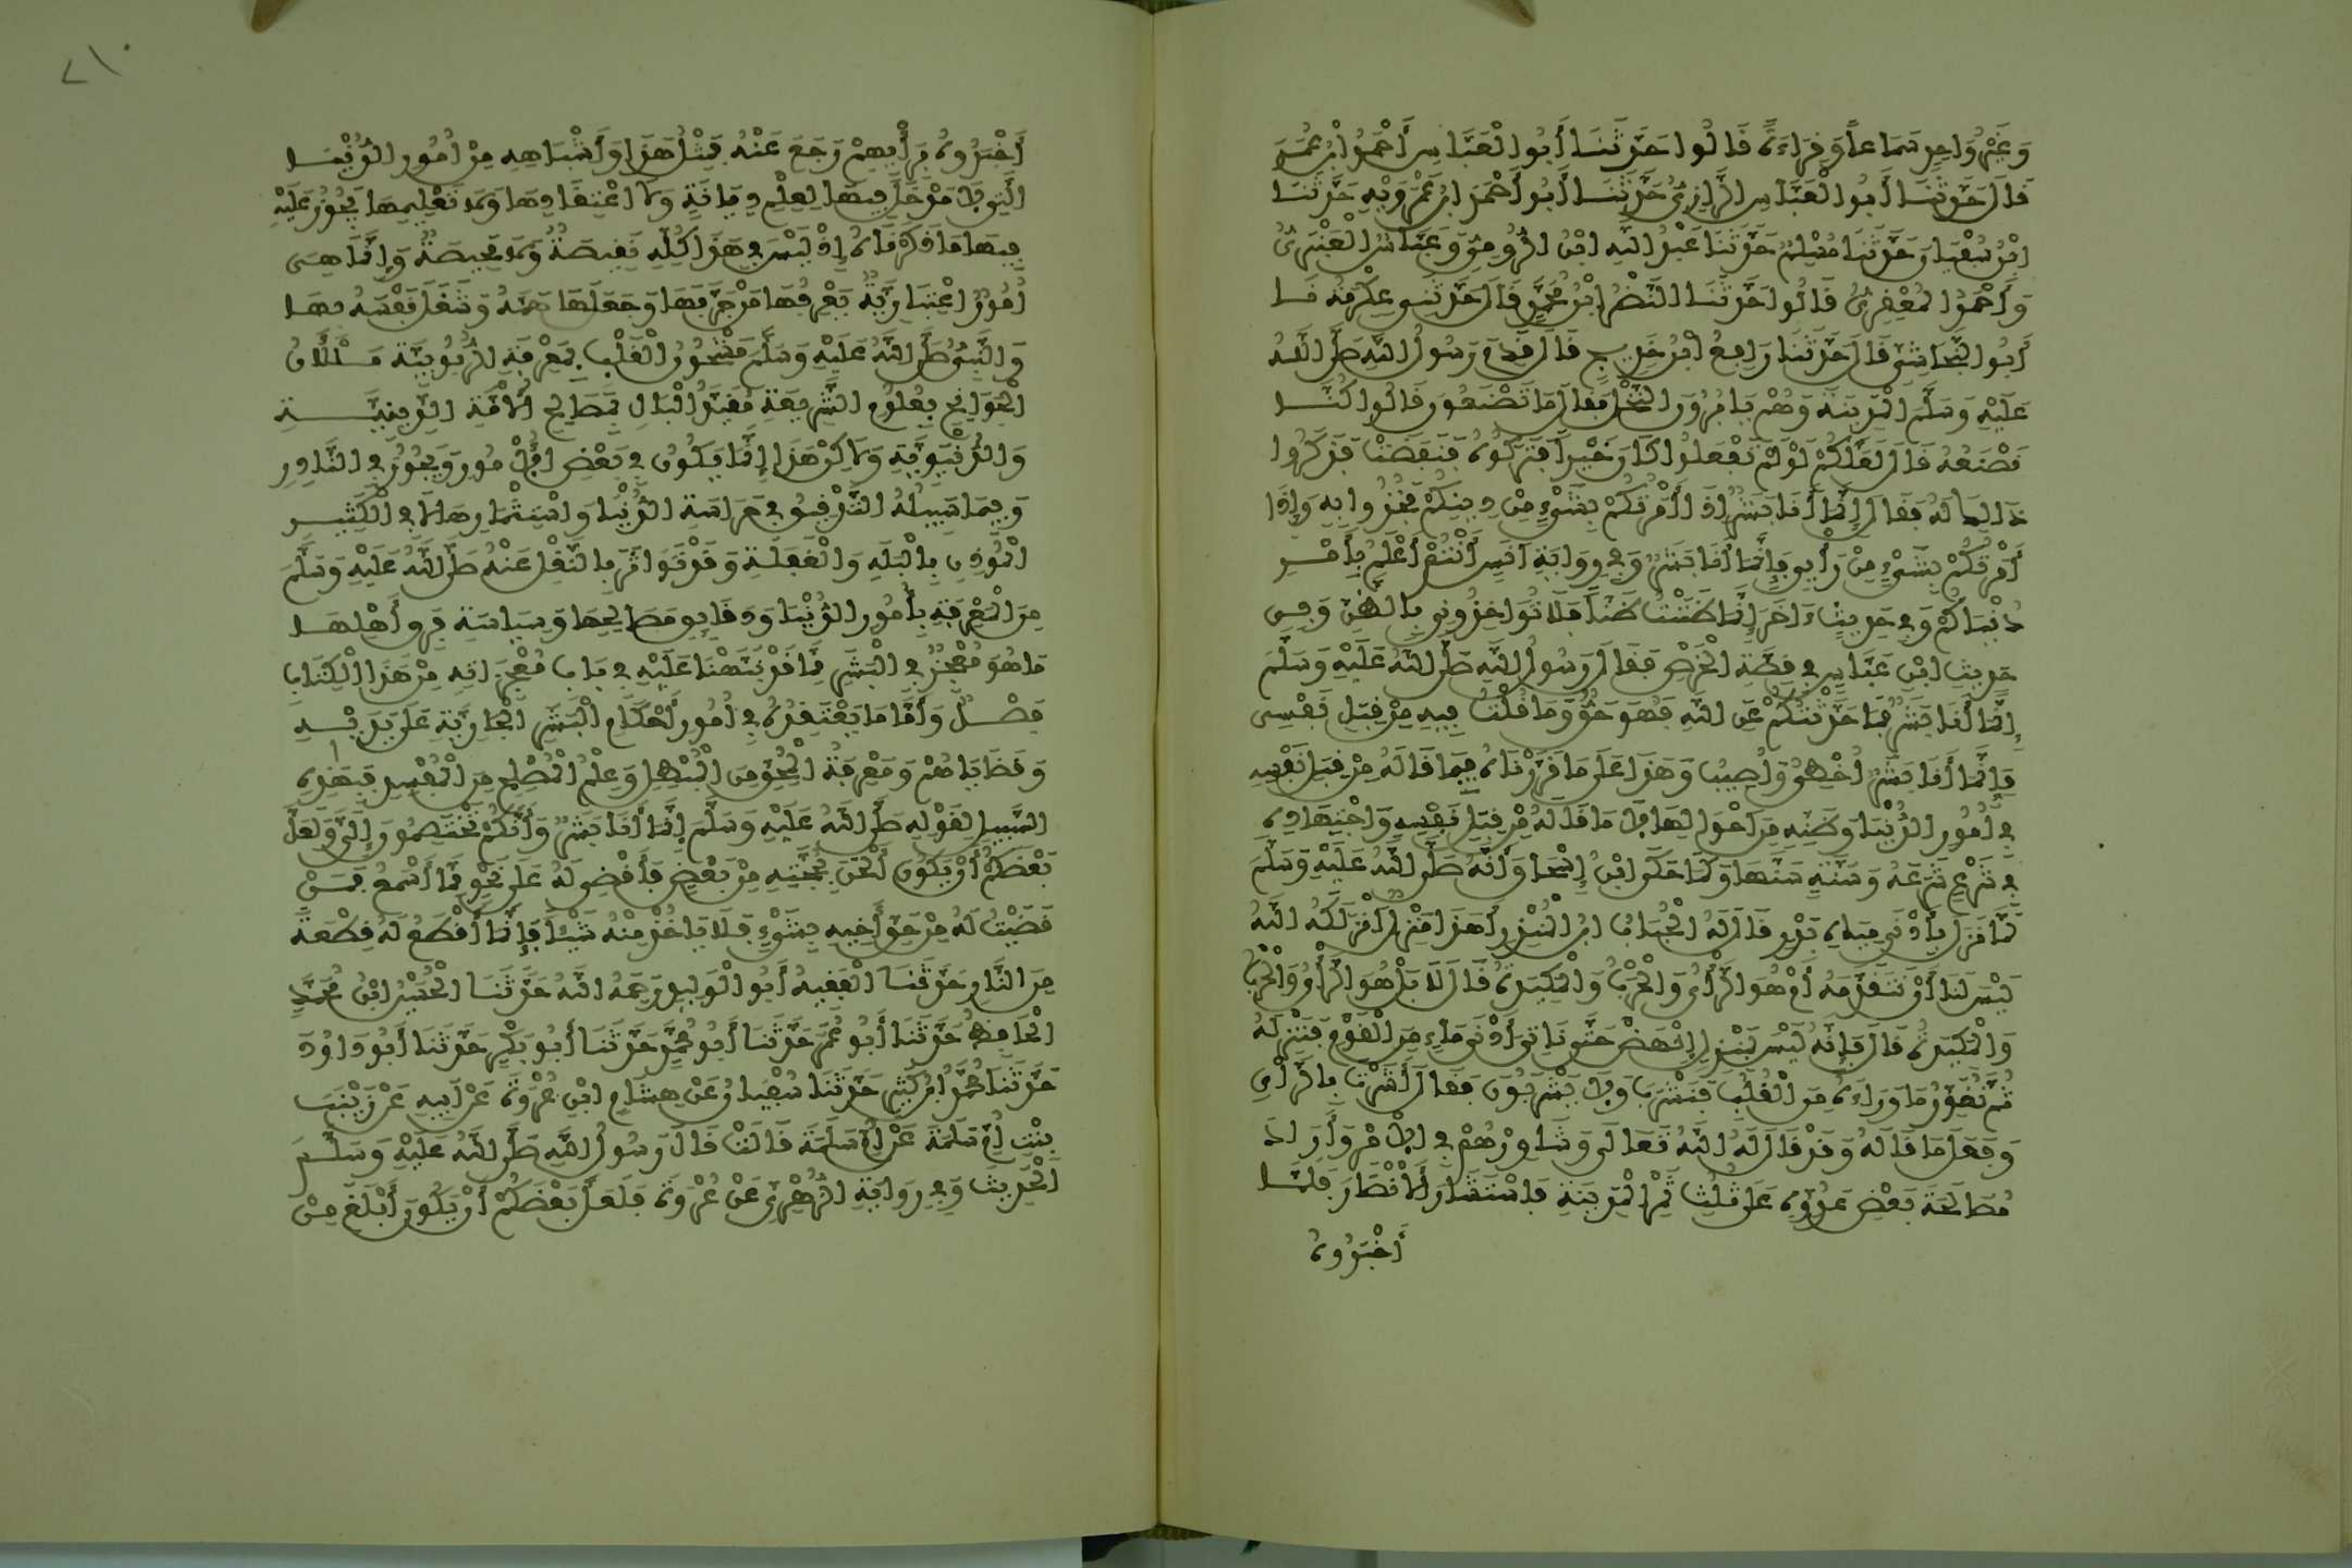 وَغَيْرُ وَاحِدٍ سَمَاعاً وَقِرَاءَةً قَالُوا حَدَّثَنَا أَبُو الْعَبَّاسِ أَحْمَدُ ابْنُ عُمَرَ
قَالَ حَدَّثَنَا أَبُو الْعَبَّاسِ الرَّازِيُّ حَدَّثَنَا أَبُو أَحْمَدَ ابْنُ عَمْرَوَيْهِ حَدَّثَنَا
ابْنُ سُفْيَانَ حَدَّثَنَا مُسْلِمٌ حَدَّثَنَا عَبْدُ اللَّهِ ابْنُ الرُّومِيِّ وَعَبَّاسٌ الْعَنْبَرِيُّ
وَأَحْمَدُ الْمَعْقِرِيُّ قَالُوا حَدَّثَنَا النَّضْرُ ابْنُ مُحَمَّدٍ قَالَ حَدَّثَنِي عِكْرِمَةُ نَا
أَبُو النَّجَاشِيِّ قَالَ حَدَّثَنَا رَافِعُ ابْنُ خَدِيجٍ قَالَ قَدِمَ رَسُولُ اللَّهِ صَلَّى اللَّهُ
عَلَيْهِ وَسَلَّمَ الْمَدِينَةَ وَهُمْ يَأْبُرُونَ النَّخْلَ فَقَالَ مَا تَصْنَعُونَ قَالُوا كُنَّا
نَصْنَعُهُ قَالَ لَعَلَّكُمْ لَوْ لَمْ تَفْعَلُوا كَانَ خَيْراً فَتَرَكُوهُ فَنَقَصَتْ فَذَكَرُوا
ذَالِكَ لَهُ فَقَالَ إِنَّمَا أَنَا بَشَرٌ إِذَا أَمَرْتُكُمْ بِشَيْءٍ مِنْ دِينِكُمْ فَخُذُوا بِهِ وَإِذَا
أَمَرْتُكُمْ بِشَيْءٍ مِنْ رَأْيِي فَإِنَّمَا أَنَا بَشَرٌ وَفِي رِوَايَةِ أَنَسٍ أَنْتُمْ أَعْلَمُ بِأَمْرِ
دُنْيَاكُمْ وَفِي حَدِيثٍ ءَاخَرَ إِنَّمَا ظَنَنْتُ ظَنّاً فَلَا تُوَاخِذُونِي بِالظَّنِّ وَفِي
حَدِيثِ ابْنِ عَبَّاسٍ فِي قِصَّةِ الْخَرْصِ فَقَالَ رَسُولُ اللَّهِ صَلَّى اللَّهُ عَلَيْهِ وَسَلَّمَ
إِنَّمَا أَنَا بَشَرٌ فَمَا حَدَّثْتُكُمْ عَنِ اللَّهِ فَهُوَ حَقٌّ وَمَا قُلْتُ فِيهِ مِنْ قِبَلِ نَفْسِي
فَإِنَّمَا أَنَا بَشَرٌ أُخْطِئُ وَأُصِيبُ وَهَذَا عَلَى مَا قَرَّرْنَاهُ فِيمَا قَالَهُ مِنْ قِبَلِ نَفْسِهِ
فِي أُمُورِ الدُّنْيَا وَظَنِّهِ مِنْ أَحْوَالِهَا لَا مَا قَالَهُ مِنْ قِبَلِ نَفْسِهِ وَاجْتِهَادِهِ
فِي شَرْعٍ شَرَعَهُ وَسُنَّةٍ سَنَّهَا وَكَمَا حَكَى ابْنُ إِسْحَاقَ أَنَّهُ صَلَّى اللَّهُ عَلَيْهِ وَسَلَّمَ
لَمَّا نَزَلَ بِأَدْنَى مِيَاهِ بَدْرٍ قَالَ لَهُ الْحُبَابُ ابْنُ الْمُنْذِرِ أَهَذَا مَنْزِلٌ أَنْزَلَكَهُ اللَّهُ
لَيْسَ لَنَا أَنْ نَتَقَدَّمَهُ أَمْ هُوَ الرَّأْيُ وَالْحَرْبُ وَالْمَكِيدَةُ قَالَ لَا بَلْ هُوَ الرَّأْيُ وَالْحَرْبُ
وَالْمَكِيدَةُ قَالَ فَإِنَّهُ لَيْسَ بِمَنْزِلٍ انْهَضْ حَتَّى نَاتِيَ أَدْنَى مَاءٍ مِنَ الْقَوْمِ فَنَنْزِلَهُ
ثُمَّ نُغَوِّرُ مَا وَرَاءَهُ مِنَ الْقُلُبِ فَنَشْرَبَ وَلَا يَشْرَبُونَ فَقَالَ أَشَرْتَ بِالرَّأْيِ
وَفَعَلَ مَا قَالَهُ وَقَدْ قَالَ لَهُ اللَّهُ تَعَالَى وَشَاوِرْهُمْ فِي الْأَمْرِ وَأَرَادَ
مُصَالَحَةَ بَعْضِ عَدُوِّهِ عَلَى ثُلُثِ ثَمْرِ الْمَدِينَةِ فَاسْتَشَارَ الْأَنْصَارَ فَلَمَّا
أَخْبَرُوهُ
٢١٠
أَخْبَرُوهُ بِرَأْيِهِمْ رَجَعَ عَنْهُ فَمِثْلُ هَذَا وَأَشْبَاهِهِ مِنْ أُمُورِ الدُّنْيَا
الَّتِي لَا مَدْخَلَ فِيهَا لِعِلْمِ دِيَانَةٍ وَلَا اعْتِقَادِهَا وَلَا تَعْلِيمِهَا يَجُوزُ عَلَيْهِ
فِيهَا مَا ذَكَرْنَاهُ إِذْ لَيْسَ فِي هَذَا كُلِّهِ نَقِيصَةٌ وَلَا مَحِيصَةٌ وَإِنَّمَا هِيَ
أُمُورٌ اعْتِيَادِيَّةٌ يَعْرِفُهَا مَنْ جَرَّبَهَا وَجَعَلَهَا هَمَّهُ وَشَغَلَ نَفْسَهُ بِهَا
وَالنَّبِيُّ صَلَّى اللَّهُ عَلَيْهِ وَسَلَّمَ مَشْحُونُ الْقَلْبِ بِمَعْرِفَةِ الرُّبُوبِيَّةِ مَلْآنُ
الْجَوَانِحِ بِعُلُومِ الشَّرِيعَةِ مُقَيَّدُ الْبَالِ بِمَصَالِحِ الْأُمَّةِ الدِّينِيَّةِ
وَالدُّنْيَوِيَّةِ وَلَاكِنْ هَذَا إِنَّمَا يَكُونُ فِي بَعْضِ الْأُمُورِ وَيَجُوزُ فِي النَّادِرِ
وَفِيمَا سَبِيلُهُ التَّدْقِيقُ فِي حِرَاسَةِ الدُّنْيَا وَاسْتِثْمَارِهَا لَا فِي الْكَثِيرِ
الْمُوذِنِ بِالْبَلَهِ وَالْغَفْلَةِ وَقَدْ تَوَاتَرَ بِالنَّقْلِ عَنْهُ صَلَّى اللَّهُ عَلَيْهِ وَسَلَّمَ
مِنَ الْمَعْرِفَةِ بِأُمُورِ الدُّنْيَا وَدَقَايِقِ مَصَالِحِهَا وَسِيَاسَةِ فِرَقِ أَهْلِهَا
مَا هُوَ مُعْجِزٌ فِي الْبَشَرِ مِمَّا قَدْ نَبَّهْنَا عَلَيْهِ فِي بَابِ مُعْجِزَاتِهِ مِنْ هَذَا الْكِتَابِ
فَصْلٌ وَأَمَّا مَا يَعْتَقِدُهُ فِي أُمُورِ أَحْكَامِ الْبَشَرِ الْجَارِيَةِ عَلَى يَدَيْهِ
وَقَضَايَاهُمْ وَمَعْرِفَةُ الْمُحِقِّ مِنَ الْمُبْطِلِ وَعِلْمُ الْمُصْلِحِ مِنَ الْمُفْسِدِ فَبِهَذِهِ
السَّبِيلِ لِقَوْلِهِ صَلَّى اللَّهُ عَلَيْهِ وَسَلَّمَ إِنَّمَا أَنَا بَشَرٌ وَأَنَّكُمْ تَخْتَصِمُونَ إِلَيَّ وَلَعَلَّ
بَعْضَكُمْ أَنْ يَكُونَ أَلْحَنَ بِحُجَّتِهِ مِنْ بَعْضٍ فَأَقْضِي لَهُ عَلَى نَحْوٍ مِمَّا أَسْمَعُ فَمَنْ
قَضَيْتُ لَهُ مِنْ حَقِّ أَخِيهِ بِشَيْءٍ فَلَا يَاخُذْ مِنْهُ شَيْئاً فَإِنَّمَا أَقْطَعُ لَهُ قِطْعَةً
مِنَ النَّارِ حَدَّثَنَا الْفَقِيهُ أَبُو الْوَلِيدِ رَحِمَهُ اللَّهُ حَدَّثَنَا الْحُسَيْنُ ابْنُ مُحَمَّدٍ
الْحَافِظُ حَدَّثَنَا أَبُو عُمَرَ حَدَّثَنَا أَبُو مُحَمَّدٍ حَدَّثَنَا أَبُو بَكْرٍ حَدَّثَنَا أَبُو دَاوُدَ
حَدَّثَنَا مُحَمَّدُ ابْنُ كَثِيرٍ حَدَّثَنَا سُفْيَانُ عَنْ هِشَامِ ابْنِ عُرْوَةَ عَنْ أَبِيهِ عَنْ زَيْنَبَ
بِنْتِ أُمِّ سَلَمَةَ عَنْ أُمِّ سَلَمَةَ قَالَتْ قَالَ رَسُولُ اللَّهِ صَلَّى اللَّهُ عَلَيْهِ وَسَلَّمَ
الْحَدِيثَ وَفِي رِوَايَةِ الزُّهْرِيِّ عَنْ عُرْوَةَ فَلَعَلَّ بَعْضَكُمْ أَنْ يَكُونَ أَبْلَغَ مِنْ